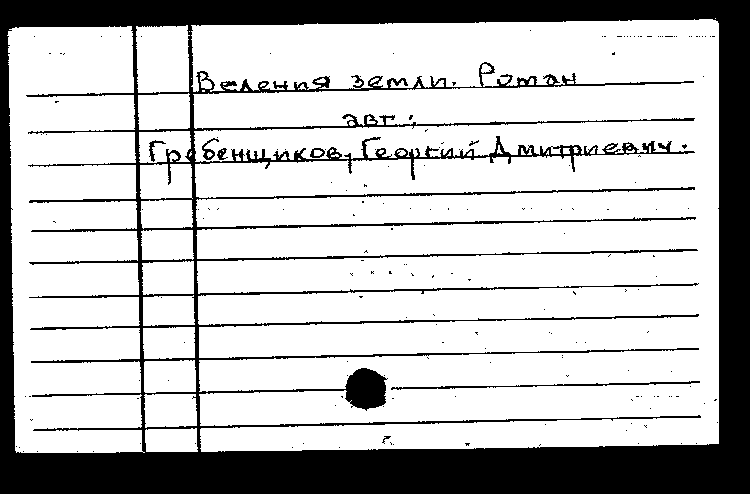 Веления земли. Роман
авт.:
Гребенщиков, Георгий Дмитриевич.